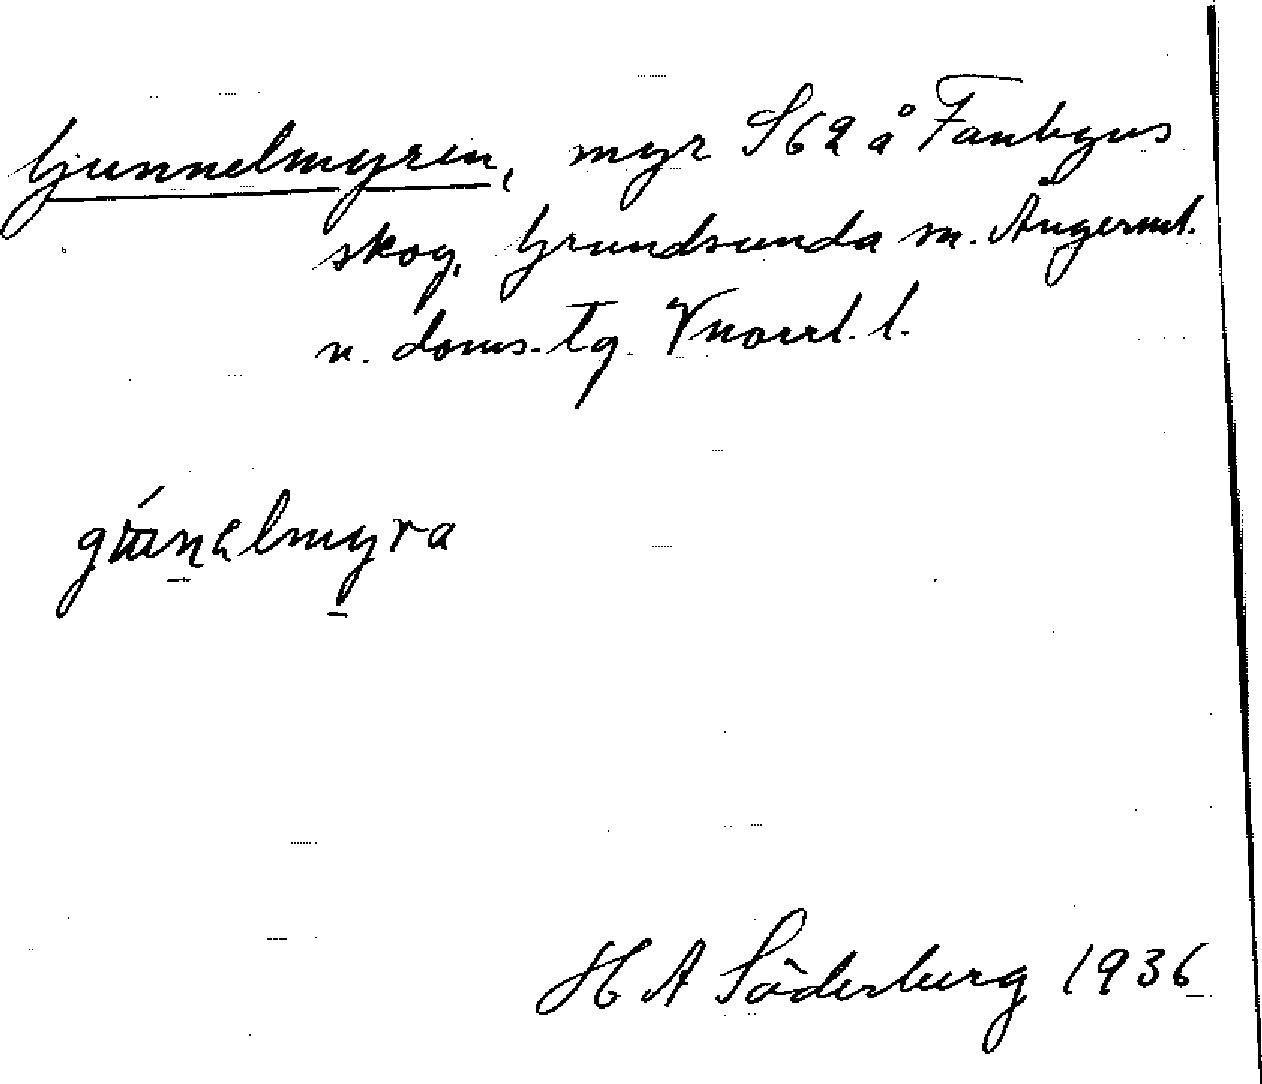 Gunnelmyren, myr S62 å Fanbyns
skog, Grundsunda sn. Ångerml.
n. doms. tg. Vnorrl. l.
H A Söderberg 1936